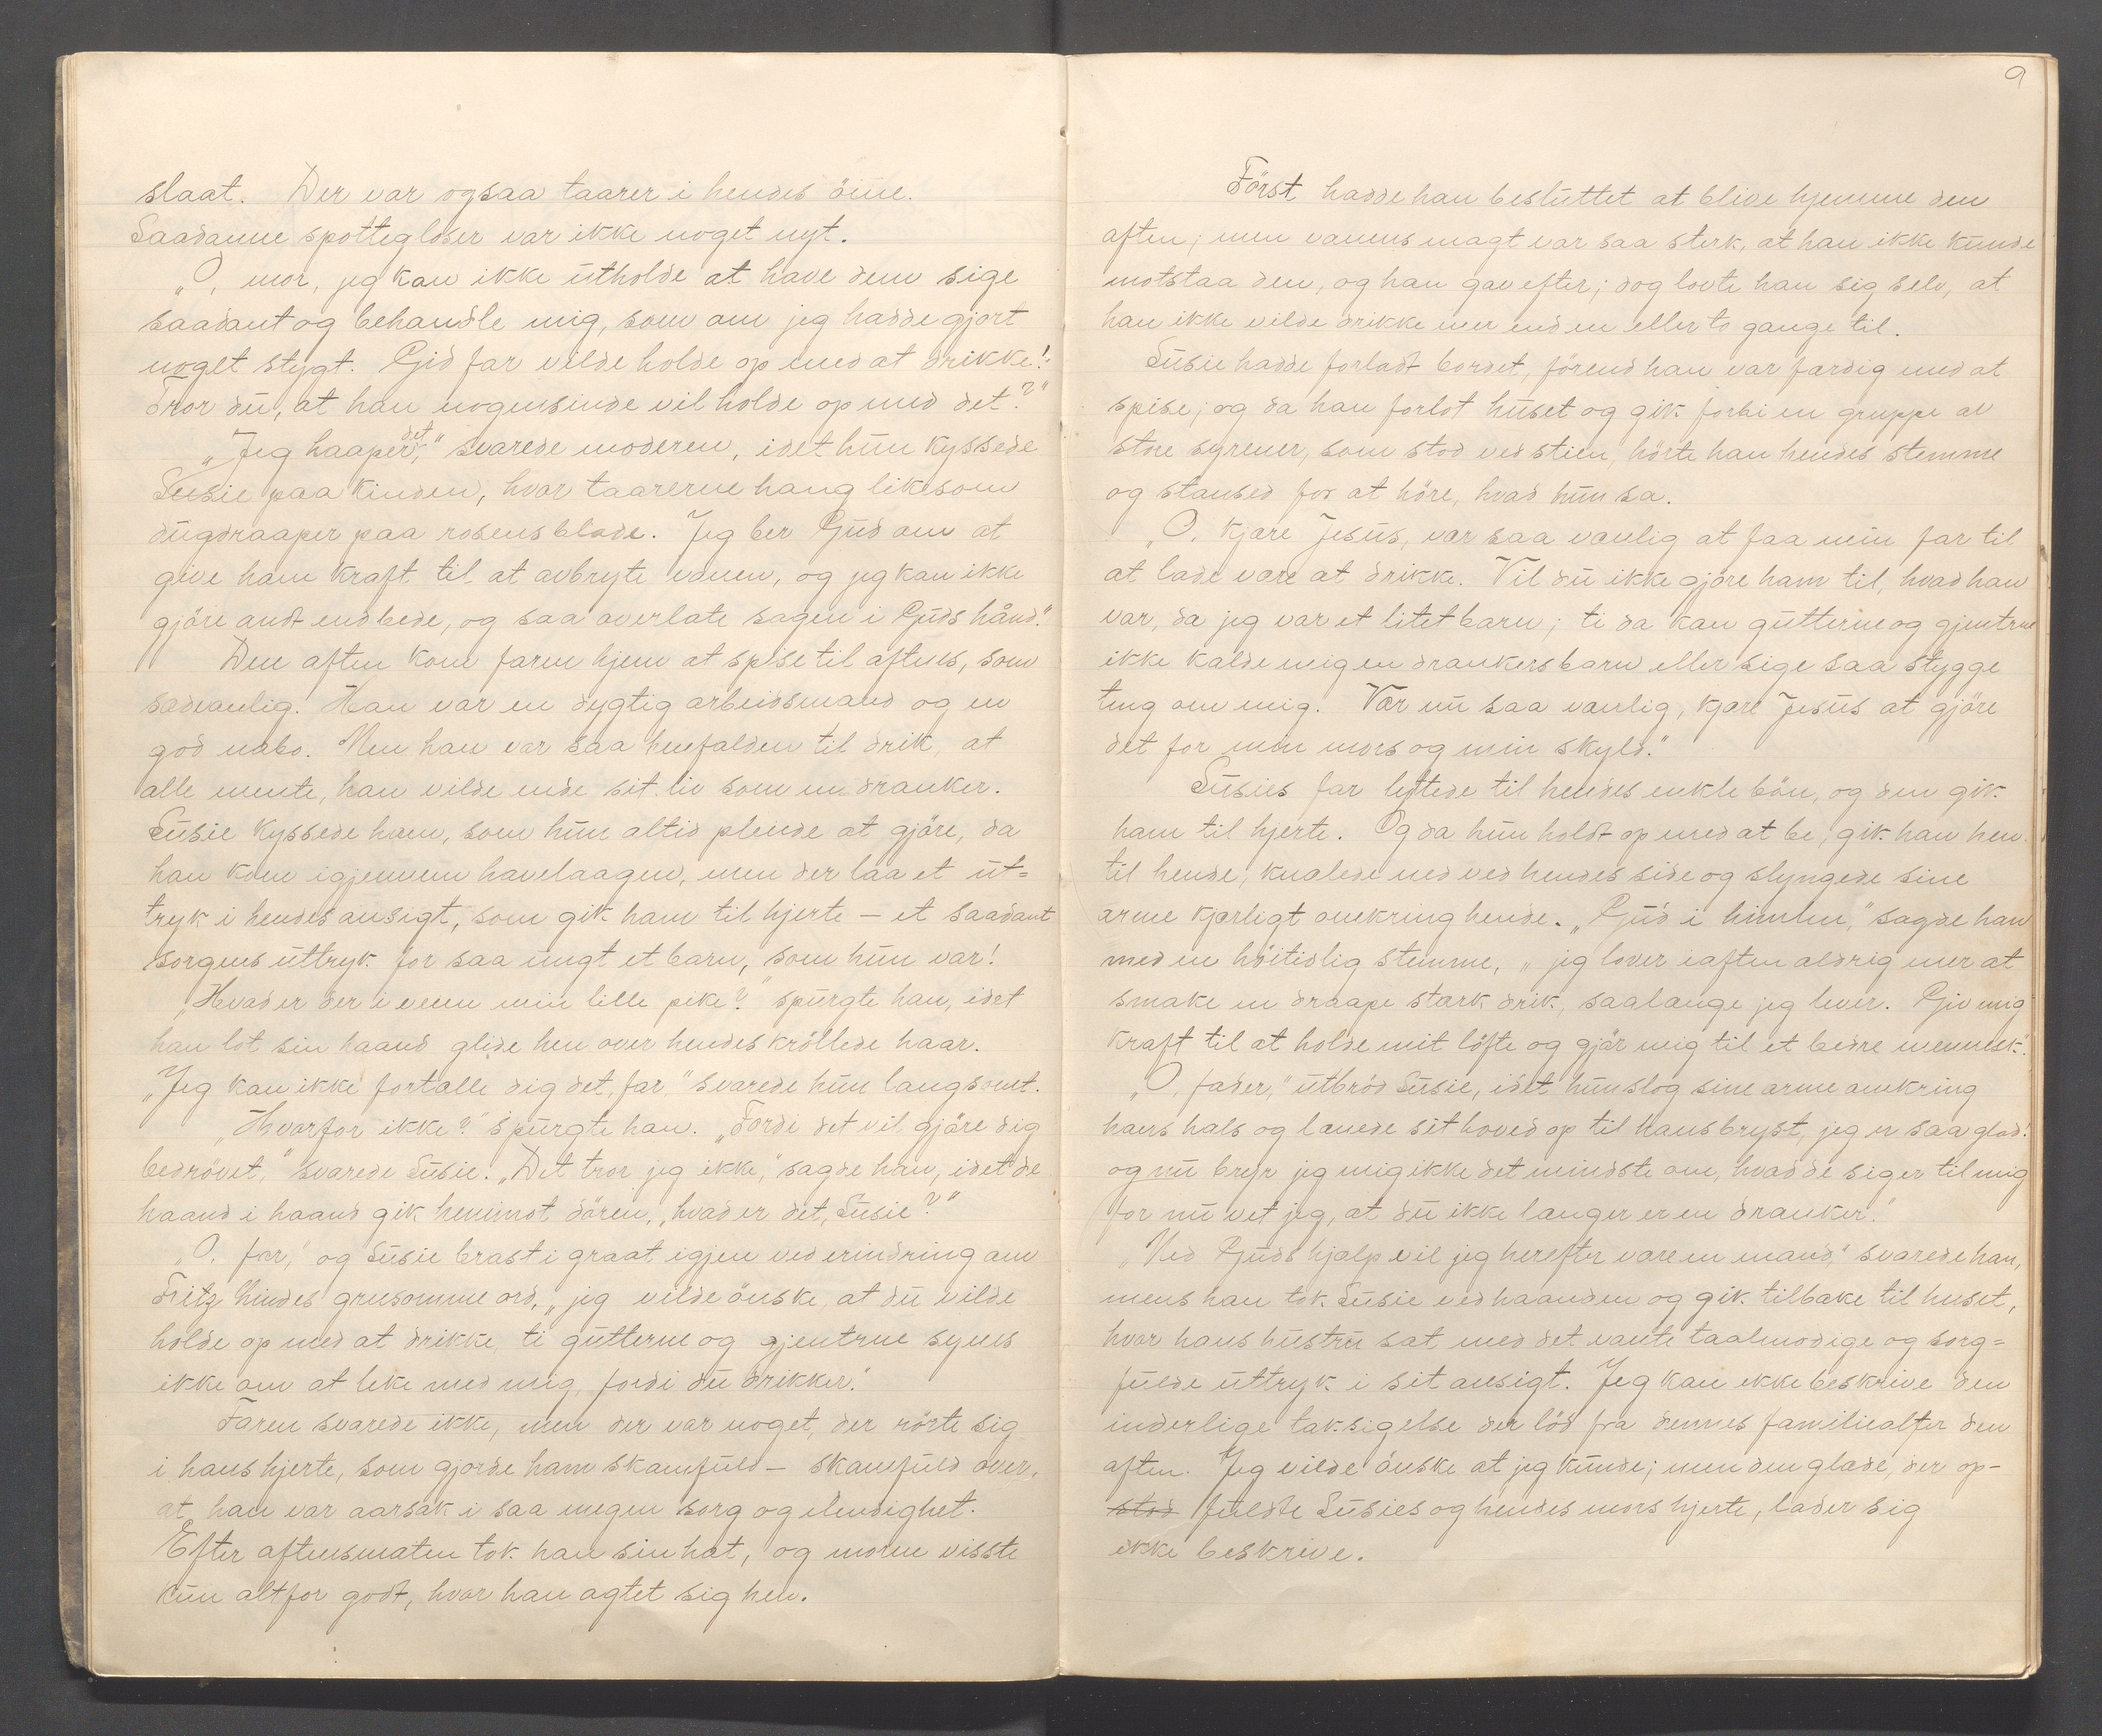 slaat. Der var ogsaa taarer i hendes öine.
Saadanne spottegloser var ikke noget nyt.
„O, mor, jeg kan ikke utholde at have dem sige
saadant og behandle mig, som om jeg hadde gjort
noget stygt. Gid far vilde holde op med at drikke!
Tror du, at han nogensinde vil holde op med det?"
„Jeg haaper det," svarede moderen, idet hun kyssede
Susie paa kinden, hvor taarerne hang likesom
dugdraaper paa rosens blade. Jeg ber Gud om at
give ham kraft til at avbryte vanen, og jeg kan ikke
gjöre andt end bede, og saa overlate sagen i Guds hånd."
Den aften kom faren hjem at spise til aftens, som
sædvanlig. Han var en dygtig arbeidsmand og en
god nabo. Men han var saa henfalden til drik, at
alle mente, han vilde ende sit liv som en dranker.
Susie kyssede ham, som hun altid pleide at gjöre, da
han kom igjennem havelaagen, men der laa et ut=
tryk i hendes ansigt, som gik ham til hjerte – et saadant
sorgens uttryk for saa ungt et barn, som hun var!
„Hvad er der i veien min lille pike?" spurgte han, idet
han lot sin haand glide hen over hendes kröllede haar.
„Jeg kan ikke fortælle dig det, far" svarede hun langsomt.
„Hvorfor ikke?" spurgte han. „Fordi det vil gjöre dig
bedrövet," svarede Susie. „Det tror jeg ikke," sagde han, idet de
haand i haand gik henimot dören, „hvad er det, Susie?"
„O, far," og Susie brast i graat igjen ved erindring om
Fritz Hindes grusomme ord, „jeg vilde önske, at du vilde
holde op med at drikke, ti gutterne og gjentrne synes
ikke om at leke med mig, fordi du drikker."
Faren svarede ikke, men der var noget, der rörte sig
i hans hjerte, som gjorde ham skamfuld – skamfuld over,
at han var aarsak i saa megen sorg og elendighet.
Efter aftensmaten tok han sin hat, og moren visste
kun altfor godt, hvor han agtet sig hen.
9
Först hadde han besluttet at blive hjemme den
aften; men vanens magt var saa sterk, at han ikke kunde
motstaa den, og han gav efter; dog lovte han sig selv, at
han ikke vilde drikke mer end en eller to gange til.
Susie hadde forladt bordet, förend han var færdig med at
spise; og da han forlot huset og gik forbi en gruppe av
store syrener, som stod ved stien, hörte han hendes stemme
og stansed for at höre, hvad hun sa.
„O, kjære Jesus, vær saa vænlig at faa min far til
at lade være at drikke. Vil du ikke gjöre ham til, hvad han
var, da jeg var et litet barn; ti da kan gutterne og gjentrne
ikke kalde mig en drankersbarn eller sige saa stygge
ting om mig. Vær nu saa vænlig, kjære Jesus at gjöre
det for min mors og min skyld."
Susies far lyttede til hendes enkle bön, og den gik
ham til hjerte. Og da hun holdt op med at be, gik han hen
til hende, knælede ned ved hendes side og slyngede sine
arme kjærligt omkring hende. „Gud i himlen," sagde han
med en höitidlig stemme, „jeg lover iaften aldrig mer at
smake en draape stærk drik, saalange jeg lever. Giv mig
kraft til at holde mit löfte og gjör mig til et bedre mennesk."
„O, fader," utbröd Susie, idet hun slog sine arme omkring
hans hals og lænede sit hoved op til hans bryst, jeg er saa glad!
og nu bryr jeg mig ikke det mindste om, hvad de siger til mig
for nu vet jeg, at du ikke længer er en dranker."
„Ved Guds hjælp vil jeg herefter være en mand," svarede han,
mens han tok Susie ved haanden og gik tilbake til huset,
hvor hans hustru sat med det vante taalmodige og sorg=
fulde uttryk i sit ansigt. Jeg kan ikke beskrive den
inderlige taksigelse der löd fra dennes familiealter den
aften. Jeg vilde önske at jeg kunde; men den glæde, der op-
stod fuldte Susies og hendes mors hjerte, lader sig
ikke beskrive.